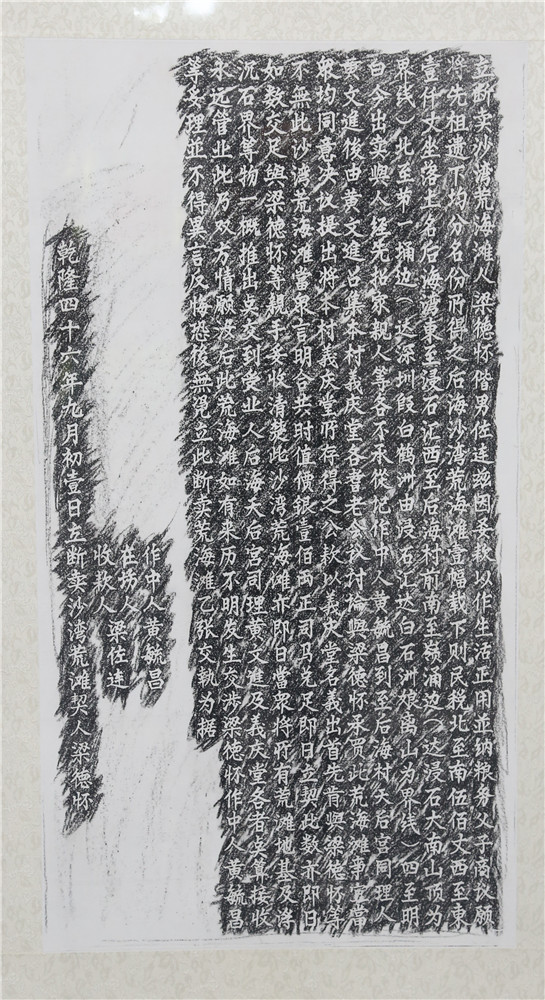 立断卖沙湾荒海滩人梁德怀偕男佐连兹因乏教以作生活正用並纳粮务父子商议愿
将先祖遗下均分名份所得之后海沙湾荒海滩壹幅载下则民税北至南伍佰丈西至東
壹仟丈坐落土名后海湾東至浸石汇西至后海村前南至嶺涌边（达浸石大南山顶为
界线）北至第一涌边（达深圳段白鹤洲由浸石汇达白石洲娘离山为界线）四至明
白今出卖與人经先招宗親人等各不承從托作中人黄毓昌到至后海村天后宫司理人
黄文進後由黄文進召集本村義庆堂各耆老公议讨论與梁德怀承買此荒海滩事宜當
衆均同意决议提出将本村義庆堂所存得之公款以義庆堂名義出首先肯與梁德怀等
不無此沙湾荒海滩當衆言明合共时值價银壹佰両正司馬兑足即日立契此数亦即日
如数交足與梁德怀等親手妥收清楚此沙湾荒海滩亦即日當衆将所有荒滩地基及海
沉石界等物一概推出点交到受业人后海天后宫司理黄文進及義庆堂各者妥算接收
永远管业此乃双方情願落后此荒海滩如有来历不明发生交涉梁德怀作中人黄毓昌
等妥理並不得異言反悔恐後無凭立此断卖荒海滩乙张交執为据
作中人黄毓昌
在场人
收款人 梁佐连
乾隆四十六年九月初壹日立断卖沙湾荒滩契人梁德怀